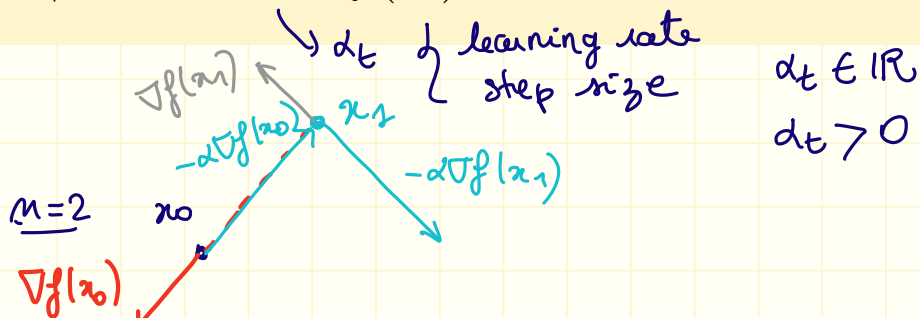 α_t { learning rate
step size
α_t ∈ ℝ
α_t > 0
∇f(x_1)
-α∇f(x_0)
x_1
-α∇f(x_1)
n=2
x_0
∇f(x_0)